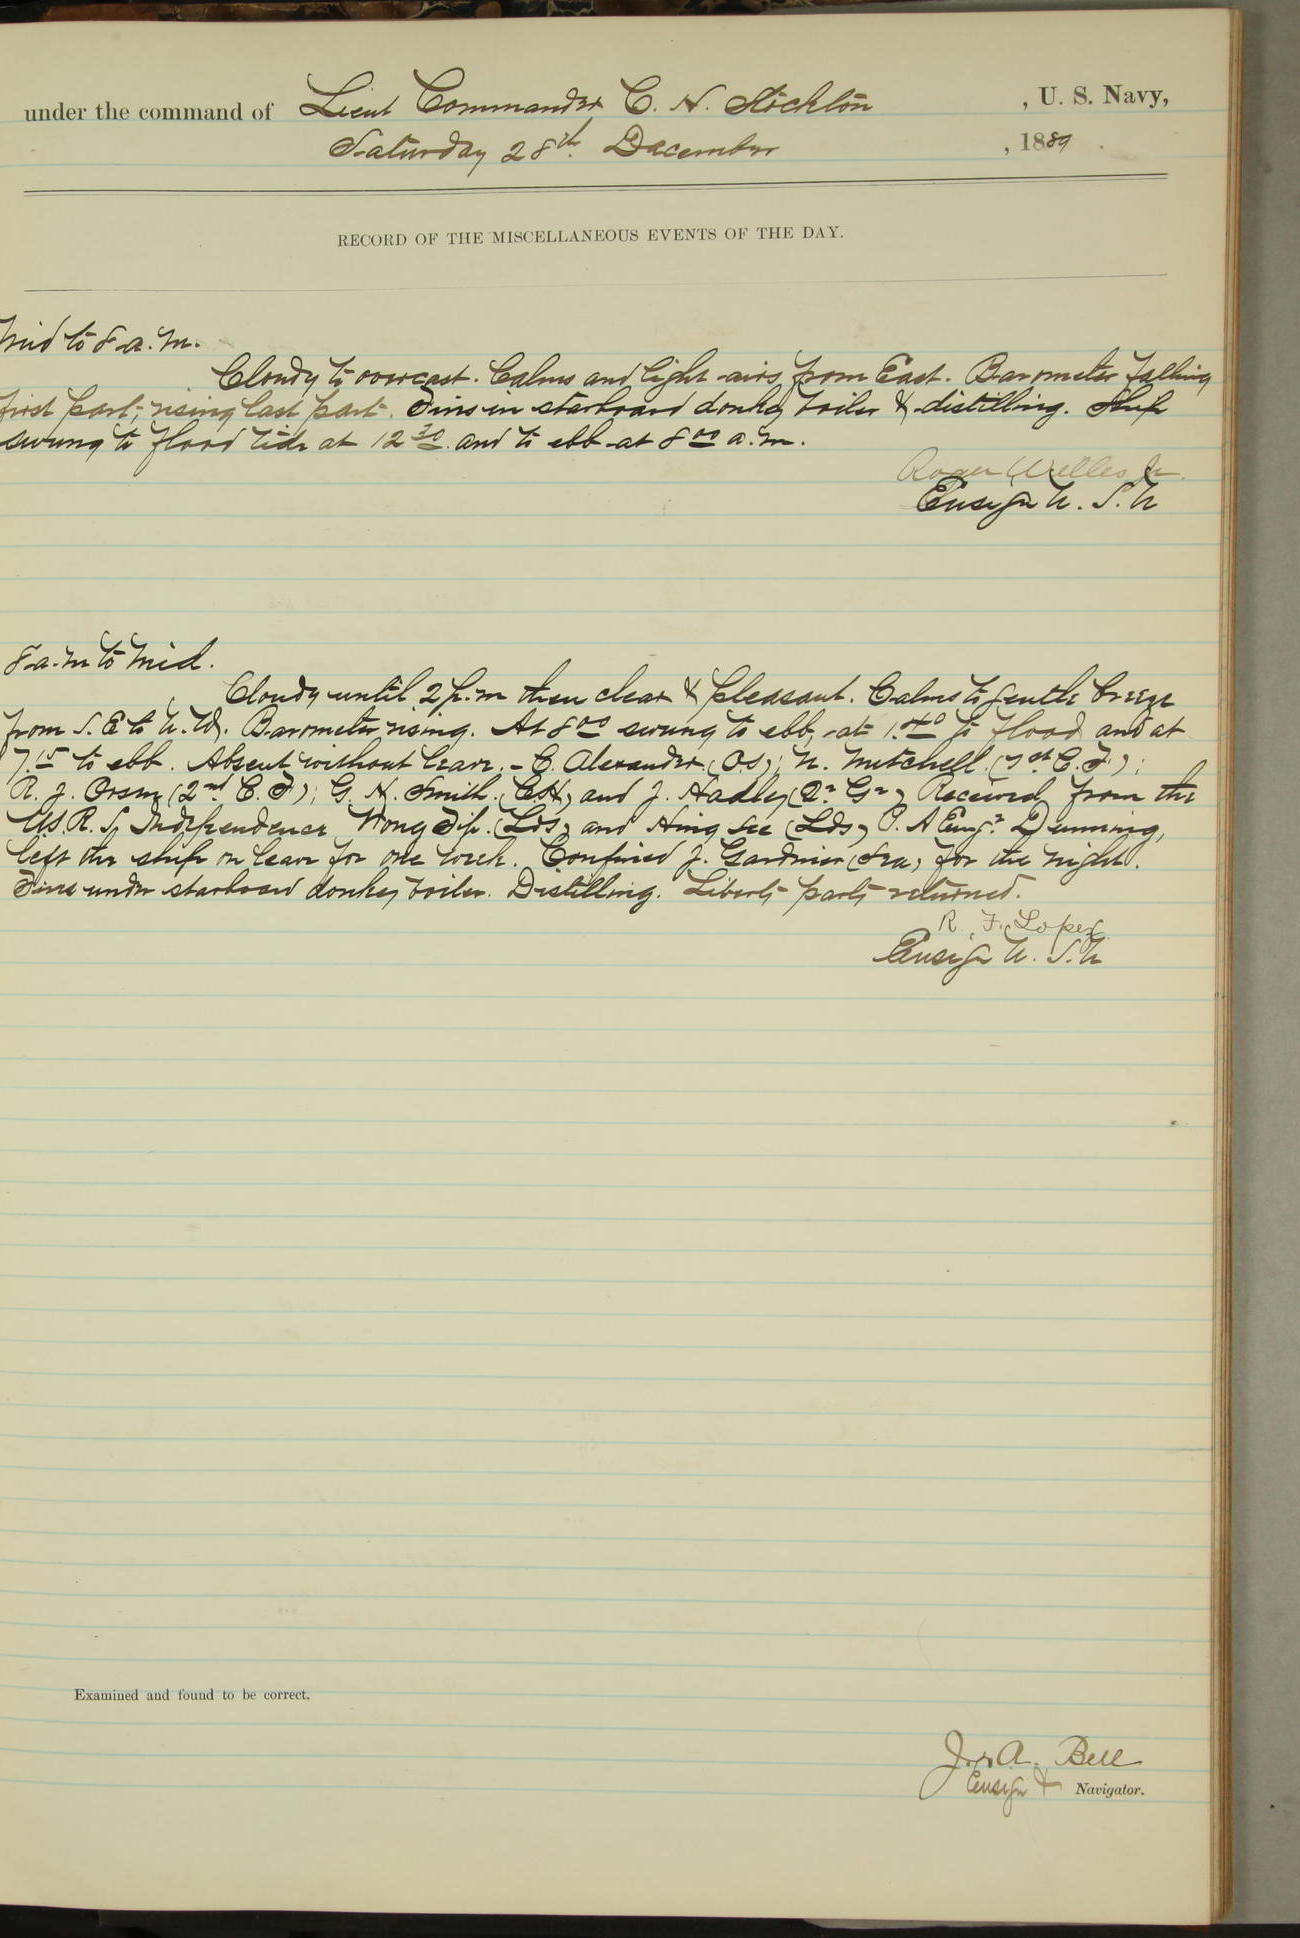 under the command of Lieut Commander C. H. Stockton, U. S. Navy,
Saturday 28th December, 1889.
RECORD OF THE MISCELLANEOUS EVENTS OF THE DAY.
Mid to 8 a.m.
Cloudy to overcast. Calms and light airs from East. Barometer falling
first part, rising last part. Fires in starboard donkey boiler & distilling. Ship
swung to flood tide at 12 30 and to ebb at 8 00 a.m.
Roger Welles Jr.
Ensign U. S. N
8 a.m to Mid.
Cloudy until 2 p.m then clear & pleasant. Calms to gentle breeze
from S. E to N. Wd. Barometer rising. At 8 00 swung to ebb, at 1 40 to flood and at
7 15 to ebb. Absent without leave. - C. Alexander (O.S); N. Mitchell (1st C. F.);
R. J. (2nd C. F); G. H. Smith (C.H) and J. Hadley (Q. Gr) Received from the
U.S.R.S Independence Wong (Lds) and Hing See (Lds) P. A Engr. Dunning,
left the ship on leave for one week. Confined J. Gardnier (Sea) for the night.
Fires under starboard donkey boiler. Distilling. Liberty party returned.
R. F. Lopez
Ensign U. S. N
Examined and found to be correct.
J. A. Bell
Ensign & Navigator.